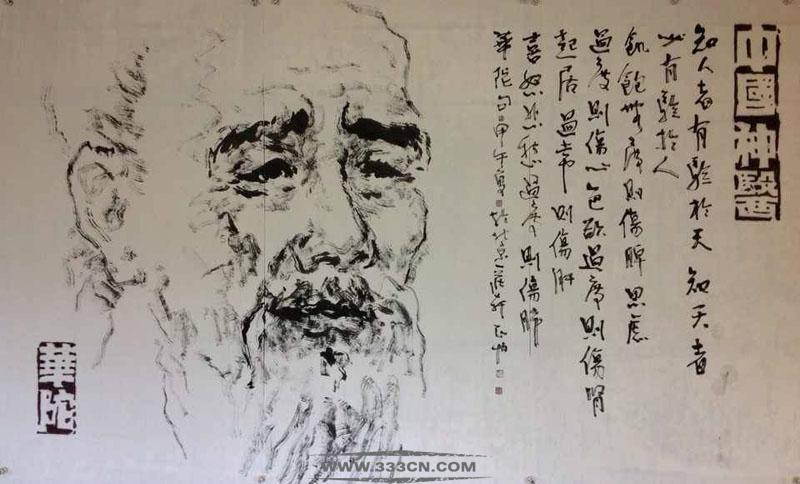 中國神醫
知人者有驗於天 知天者
必有驗於人
飢飽無度則傷脾 思慮
過度則傷心 色欲過度則傷腎
起居過常則傷肝
喜怒悲愁過度則傷肺
華陀句 甲午夏 於北京
華陀
WWW.333CN.COM